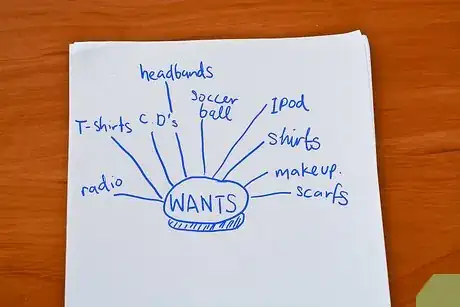 headbands
soccer
ball
IPod
T-shirts
C.D's
shirts
makeup.
radio
scarfs
WANTS